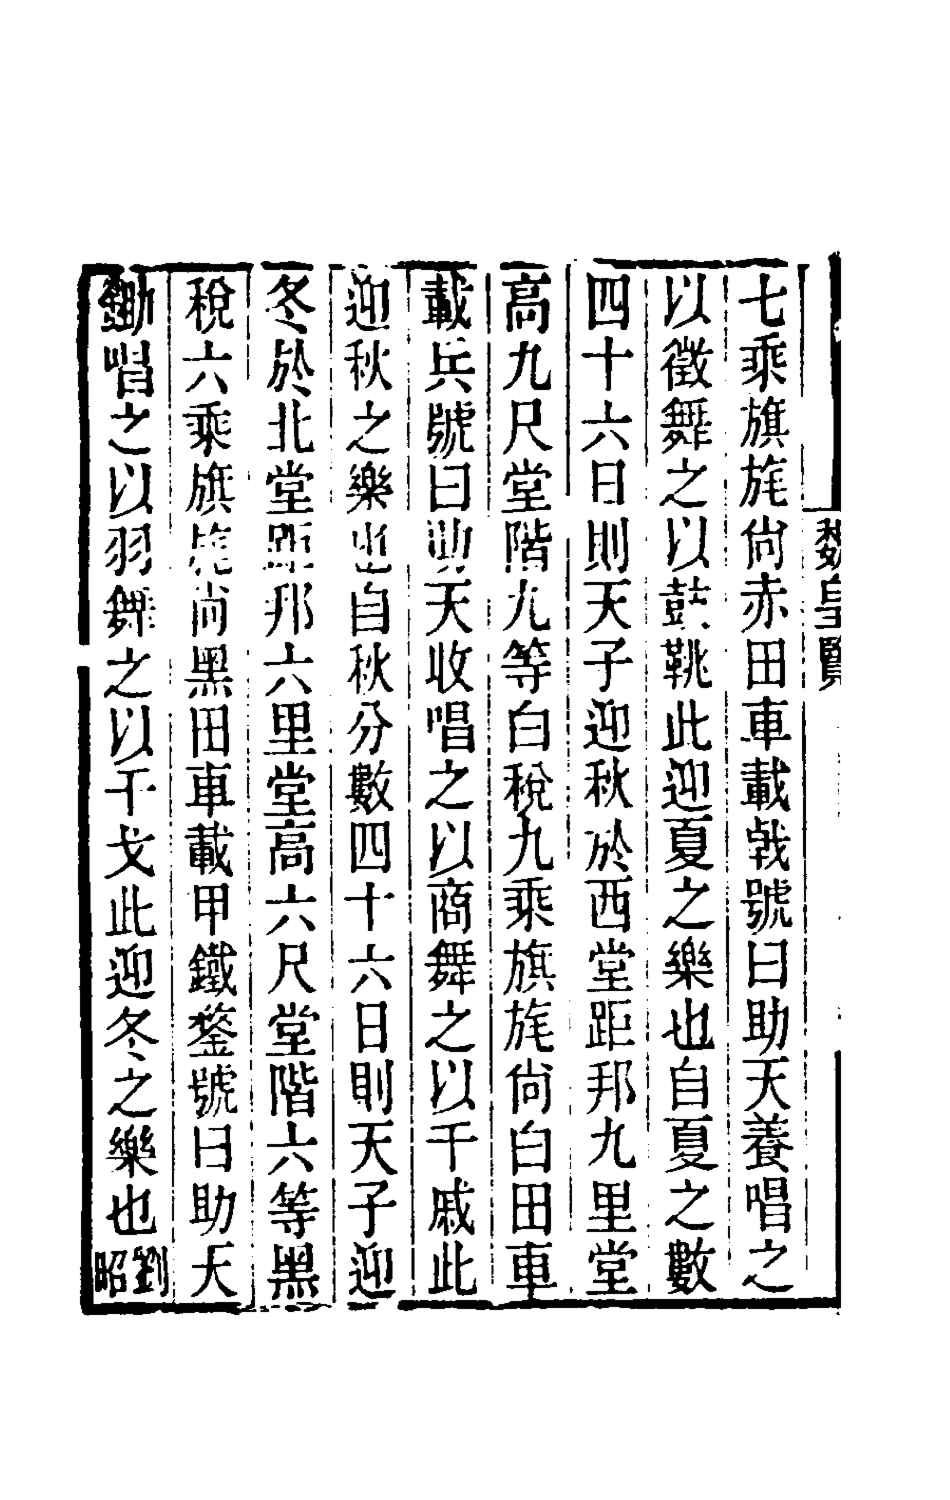 魏皇覽
七乘旗旄尙赤田車載戟號曰助天養唱之
以徵舞之以鼓鞉此迎夏之樂也自夏之數
四十六日則天子迎秋於西堂距邦九里堂
高九尺堂階九等白稅九乘旗旄尙白田車
載兵號曰助天收唱之以商舞之以干戚此
迎秋之樂也自秋分數四十六日則天子迎
冬於北堂距邦六里堂高六尺堂階六等黑
稅六乘旗旄尙黑田車載甲鐵鍪號曰助天
鋤唱之以羽舞之以干戈此迎冬之樂也劉昭